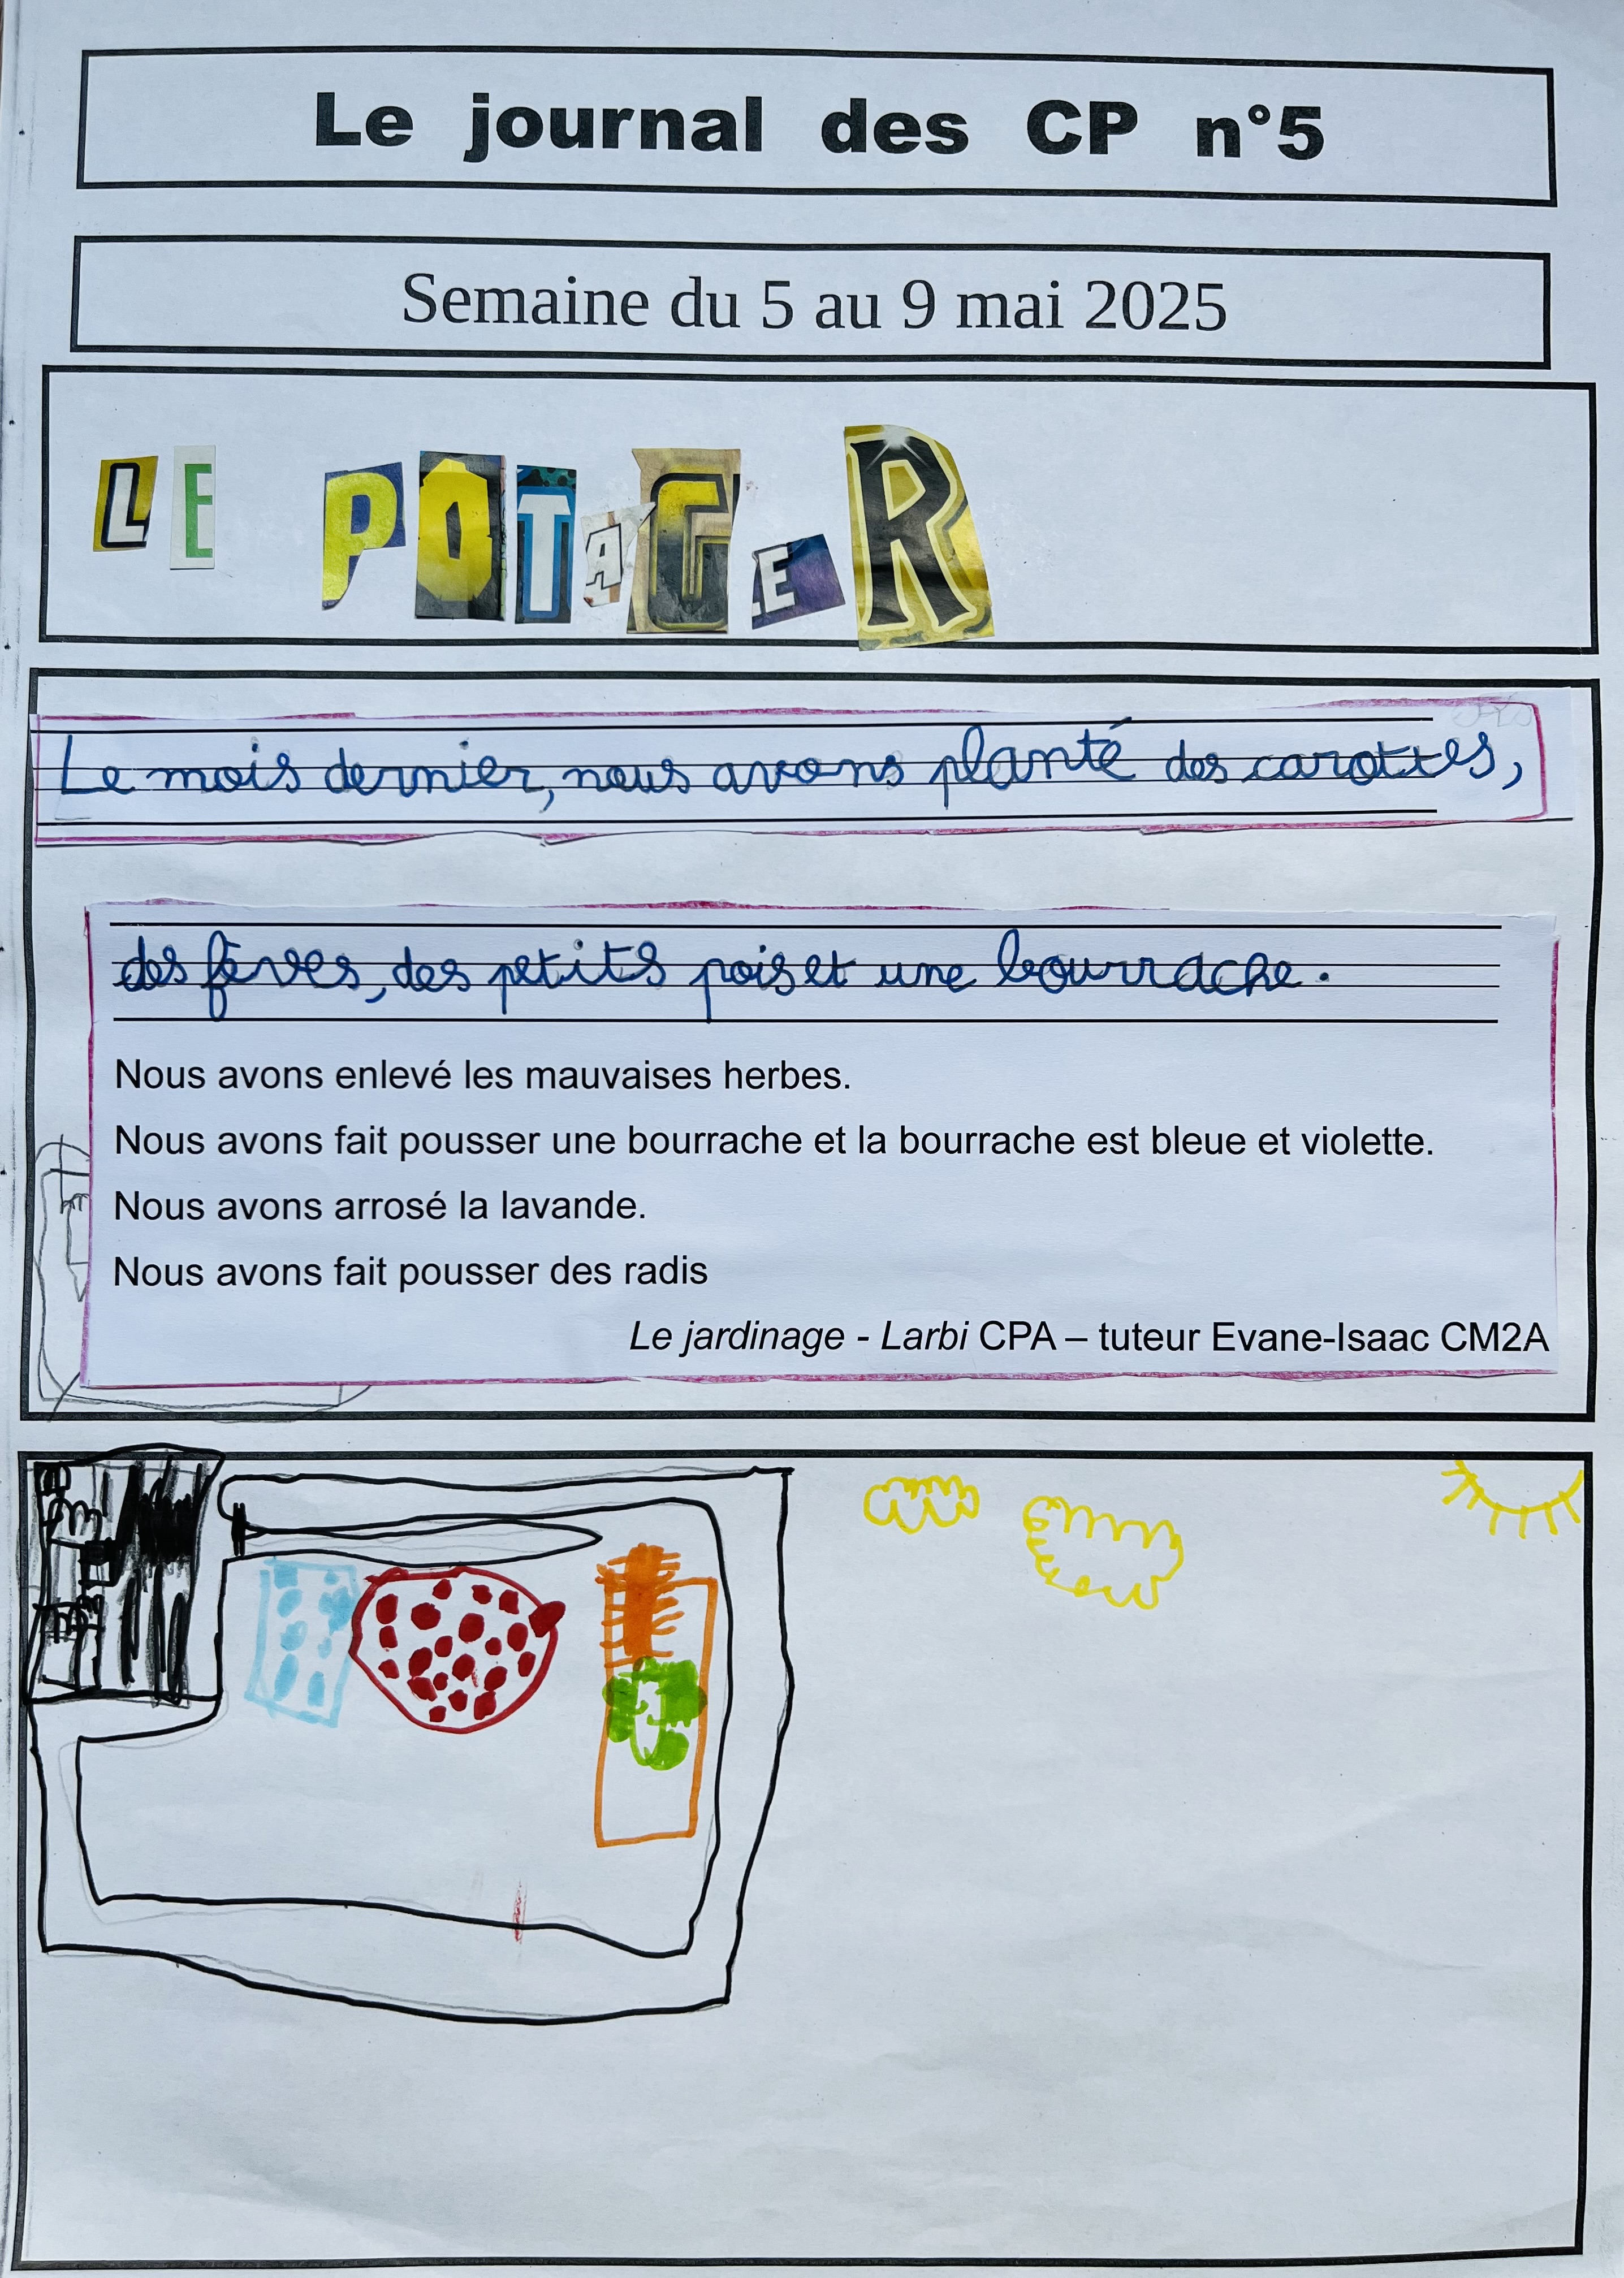 Le journal des CP n°5
Semaine du 5 au 9 mai 2025
LE POTAGER
Le mois dernier, nous avons planté des carottes,
des fèves, des petits pois et une bourrache.
Nous avons enlevé les mauvaises herbes.
Nous avons fait pousser une bourrache et la bourrache est bleue et violette.
Nous avons arrosé la lavande.
Nous avons fait pousser des radis
Le jardinage - Larbi CPA – tuteur Evane-Isaac CM2A